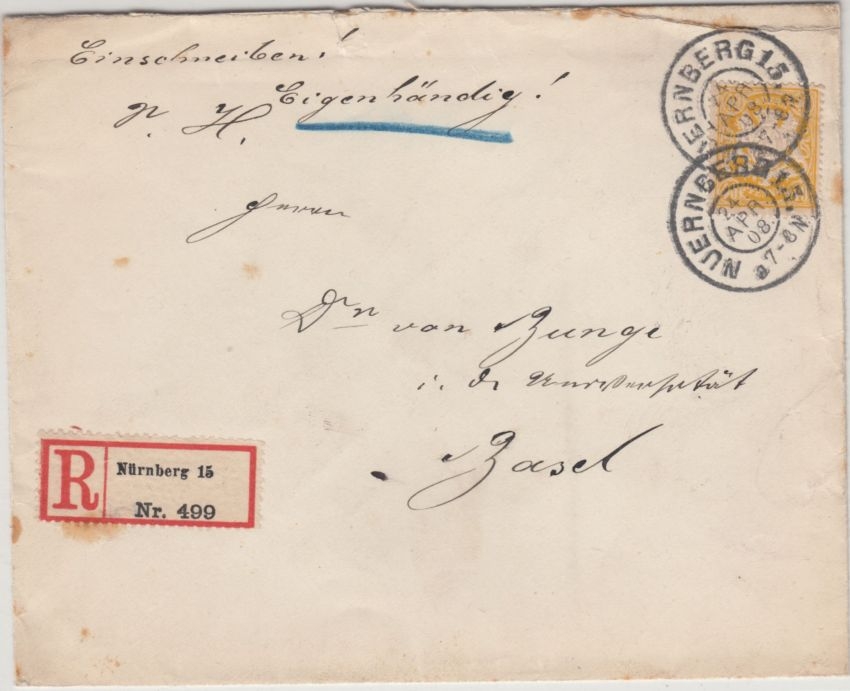 Einschreiben!
Eigenhändig!
P. H.
Herrn
Dr von Bunge
a. d. Universität
Basel
NUERNBERG 15.
APR
08
7-8 N
NUERNBERG 15.
24
APR
08.
7-8 N.
R
Nürnberg 15
Nr. 499